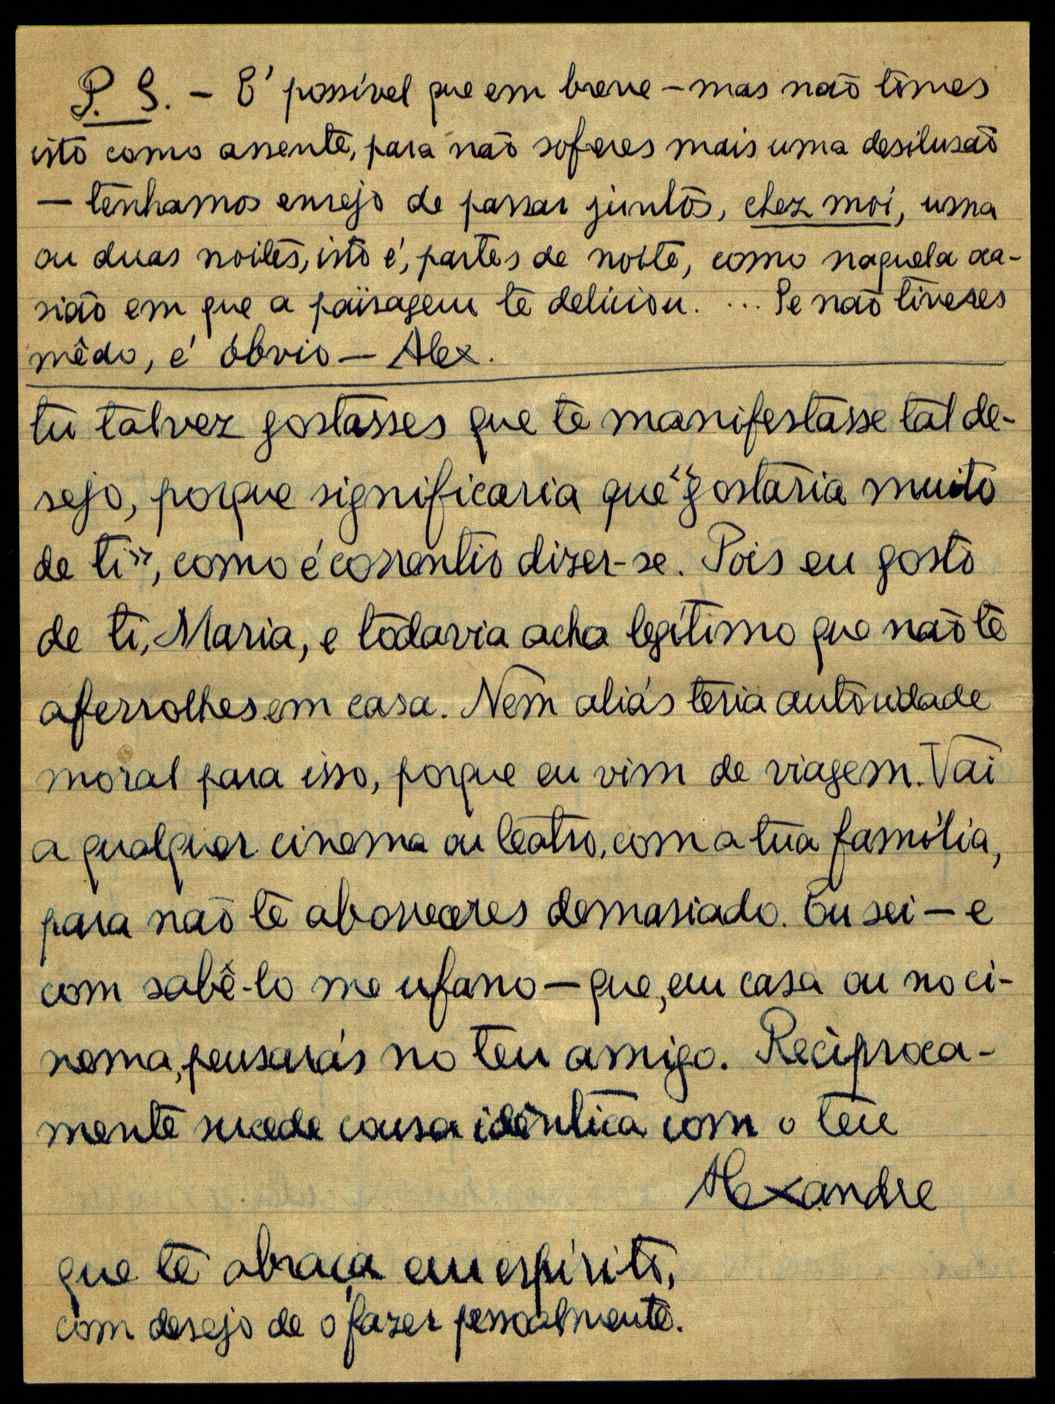 P. S. — É possível que em breve — mas não tomes
isto como assente, para não sofreres mais uma desilusão
— tenhamos ensejo de passar juntos, chez moi, uma
ou duas noites, isto é, partes de noite, como naquela oca-
sião em que a païsagem te deliciou. ... Se não tiveres
mêdo, é óbvio — Alex.
tu talvez gostasses que te manifestasse tal de-
sejo, porque significaria que "gostaria muito
de ti", como é corrente dizer-se. Pois eu gosto
de ti, Maria, e todavia acho legítimo que não te
aferrolhes em casa. Nem aliás teria autoridade
moral para isso, porque eu vim de viagem. Vai
a qualquer cinema ou teatro, com a tua família,
para não te aborreceres demasiado. Eu sei — e
com sabê-lo me ufano — que, em casa ou no ci-
nema, pensarás no teu amigo. Recìproca-
mente sucede cousa idêntica com o teu
Alexandre
que te abraça em espírito,
com desejo de o fazer pessoalmente.